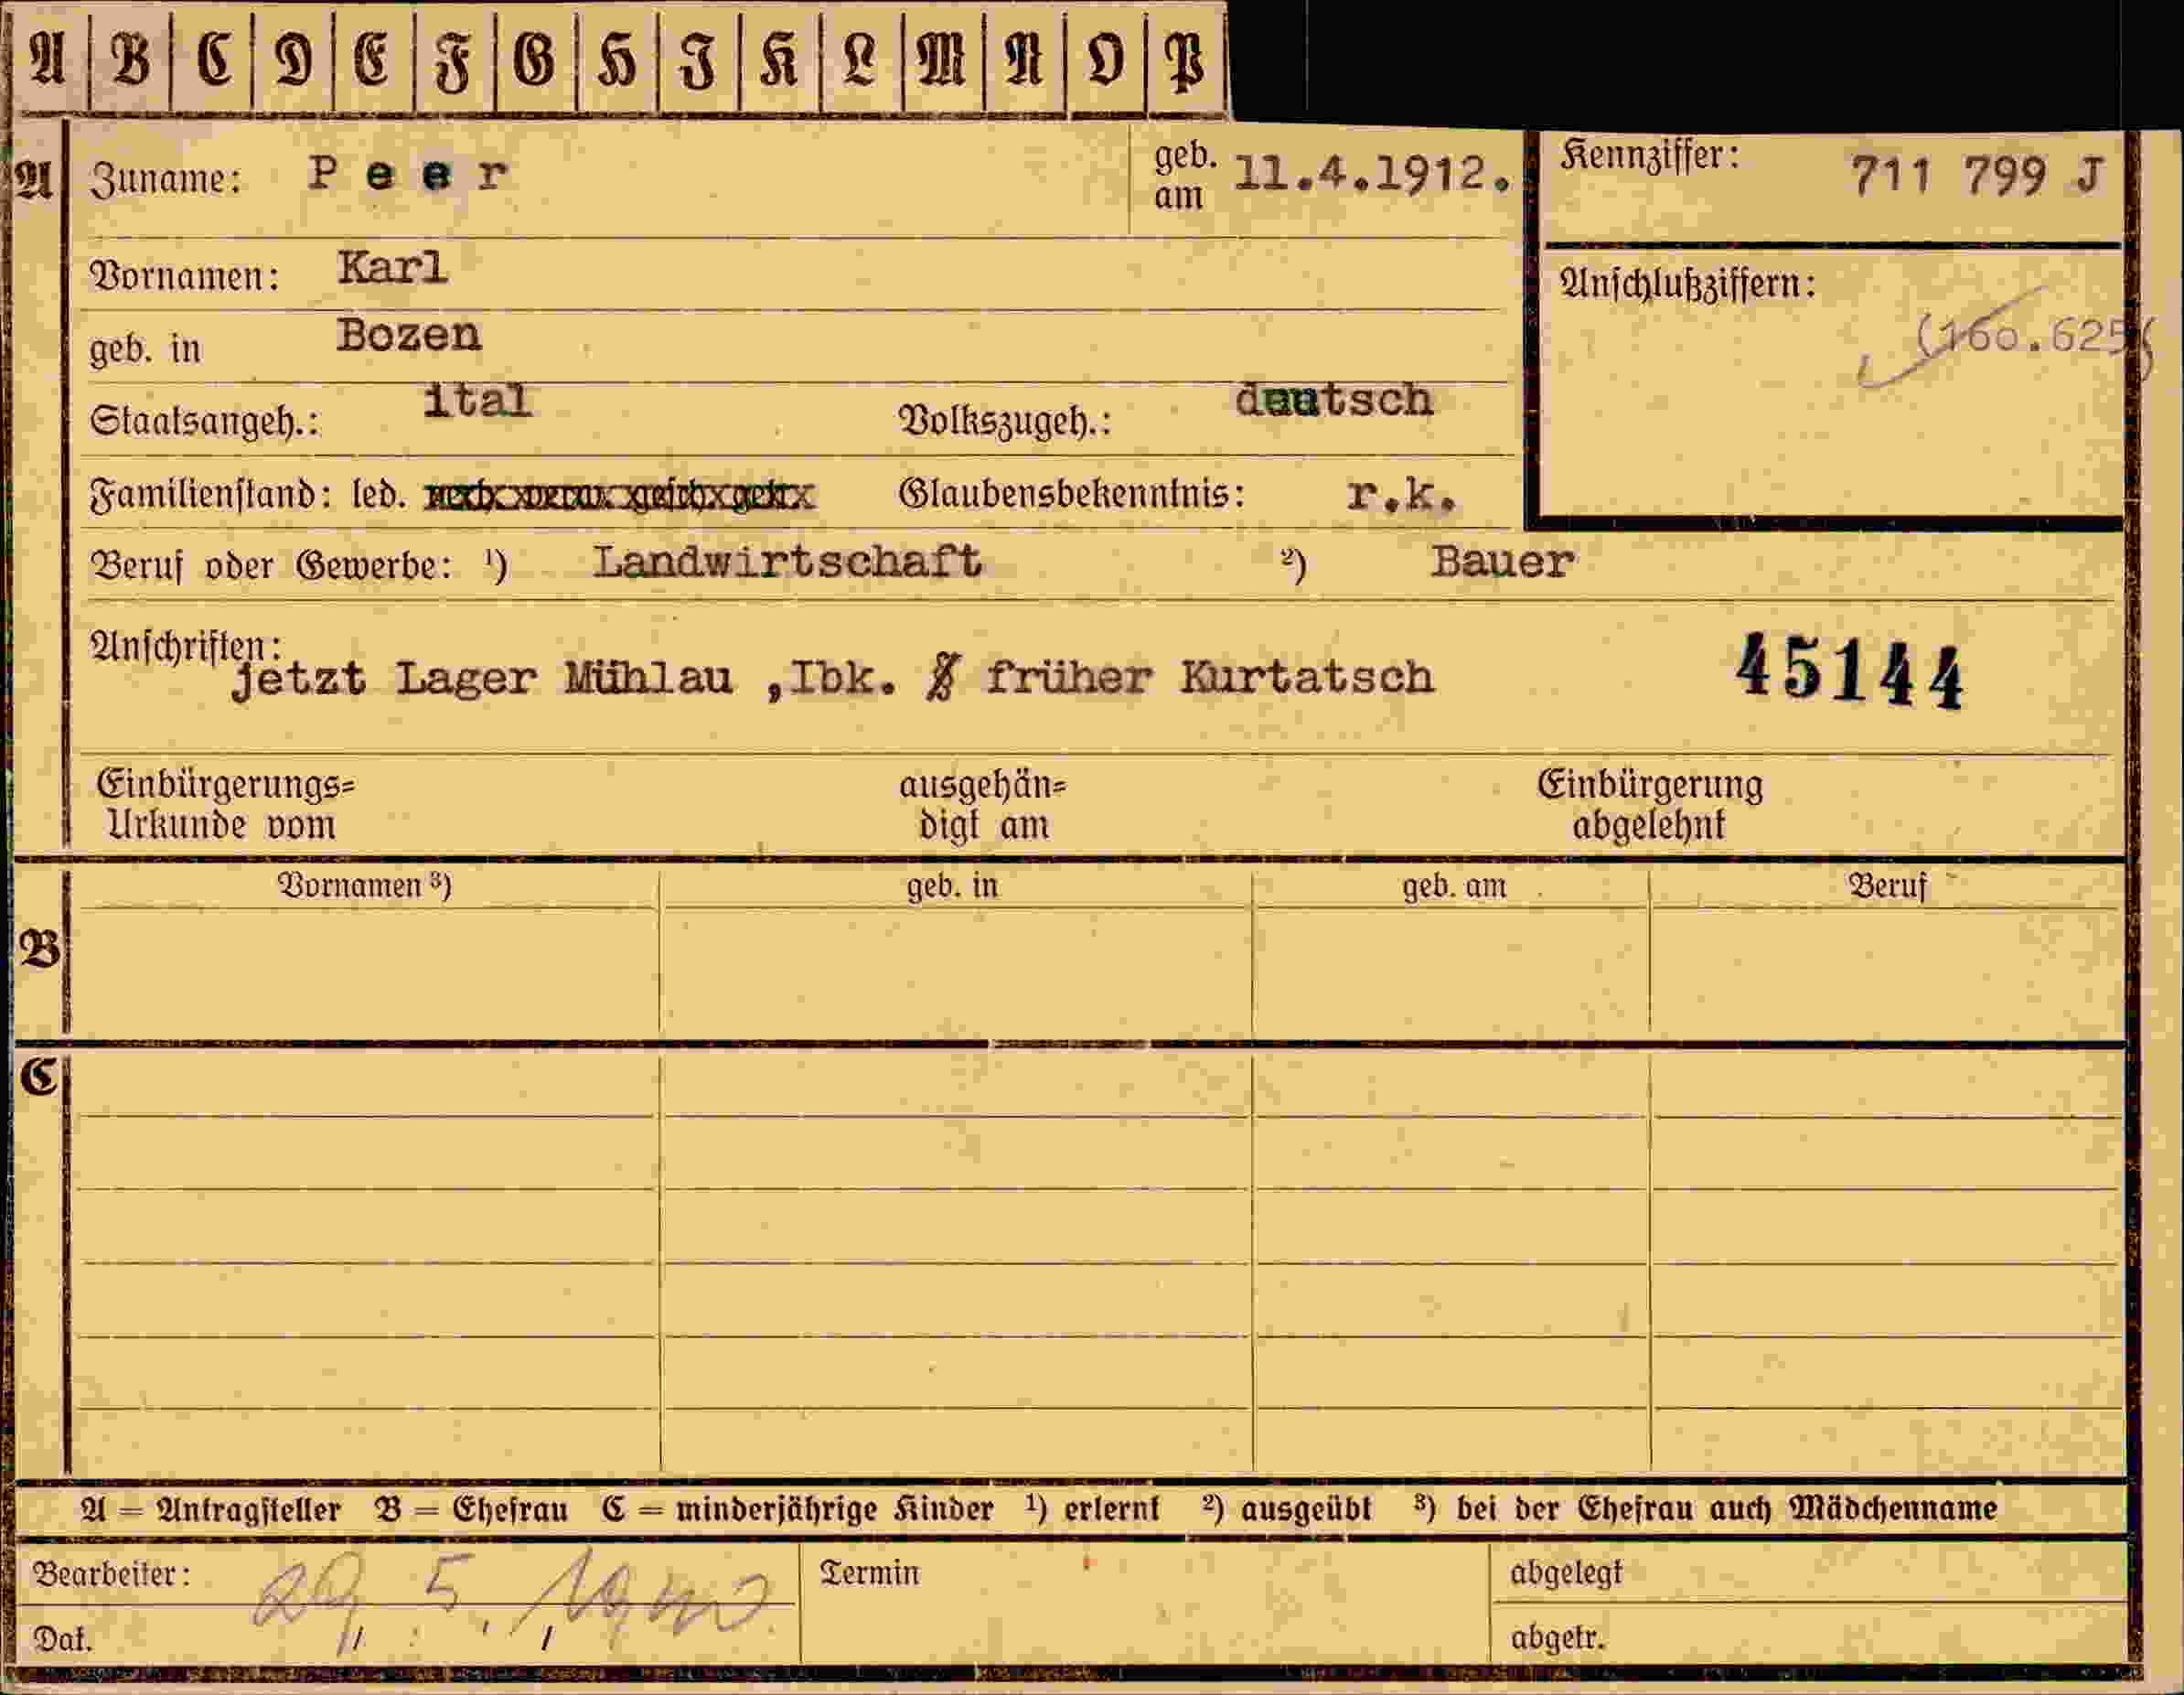 A B C D E F G H I K L M N O P
A Zuname: Peer geb. am 11.4.1912. Kennziffer: 711 799 J
Vornamen: Karl
Anschlußziffern:
(160.625)
geb. in Bozen
Staatsangeh.: ital Volkszugeh.: deutsch
Familienstand: led. verh. verw. gesch. getr. Glaubensbekenntnis: r.k.
Beruf oder Gewerbe: ¹) Landwirtschaft ²) Bauer
Anschriften:
jetzt Lager Mühlau ,Ibk. früher Kurtatsch 45144
Einbürgerungs= ausgehän= Einbürgerung
Urkunde vom digt am abgelehnt
Vornamen ³) geb. in geb. am Beruf
B
C
A = Antragsteller B = Ehefrau C = minderjährige Kinder ¹) erlernt ²) ausgeübt ³) bei der Ehefrau auch Mädchenname
Bearbeiter: 29. 5. 1940 Termin abgelegt
Dat. abgetr.